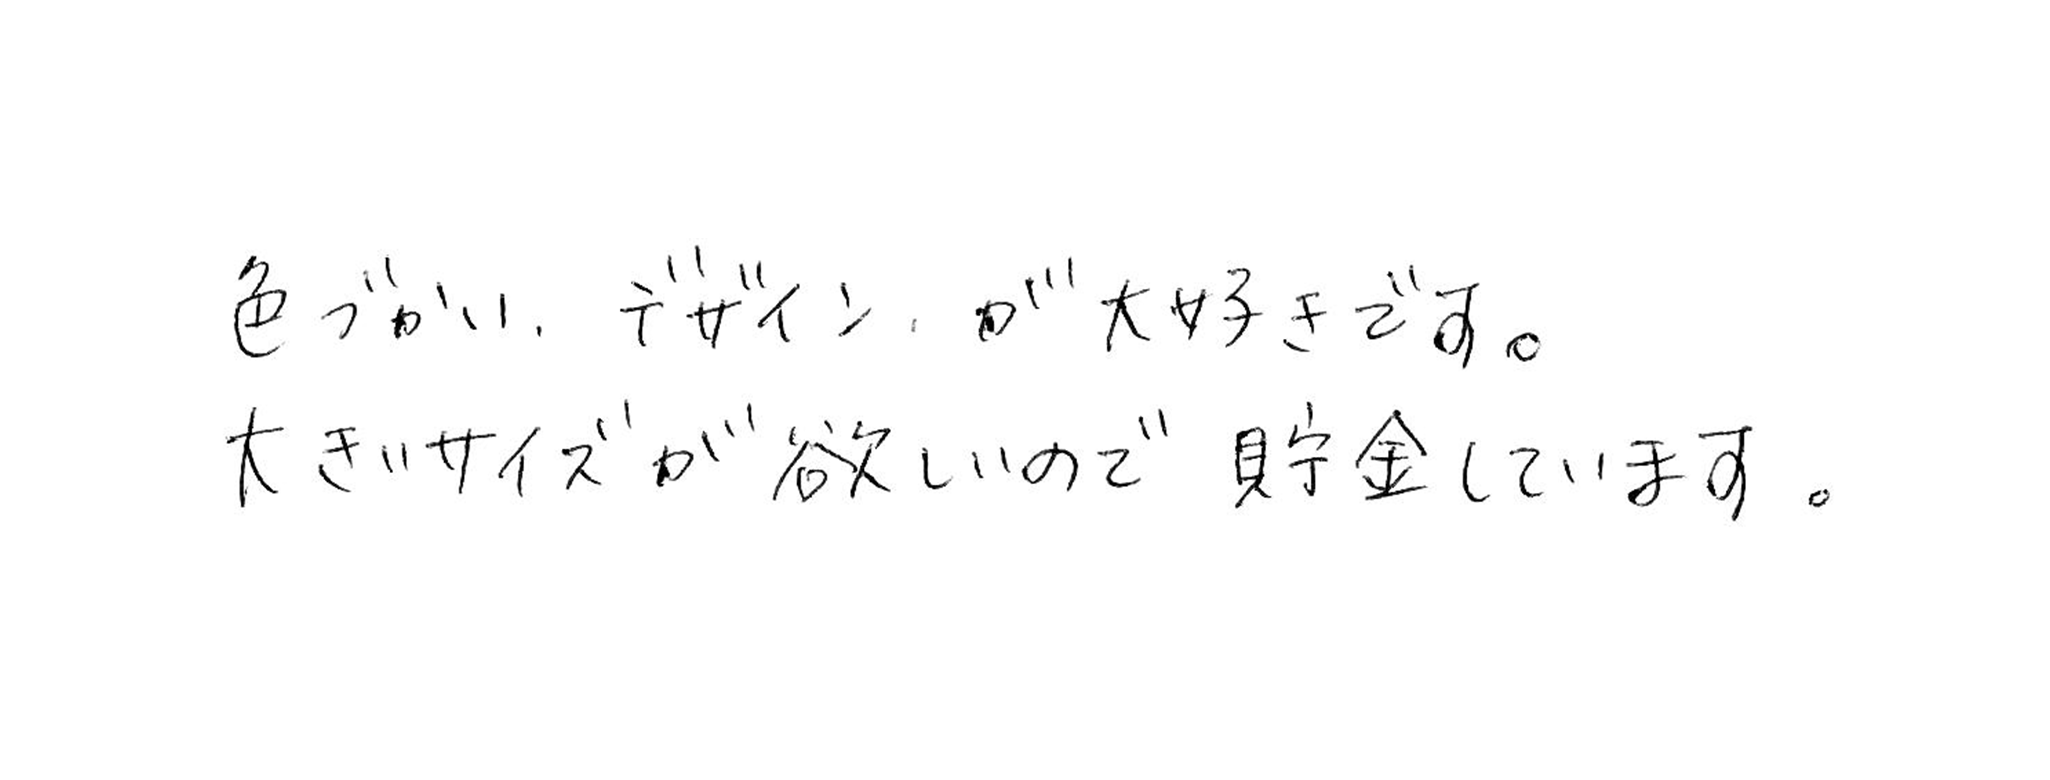 色づかい、デザイン、が大好きです。
大きいサイズが欲しいので貯金しています。